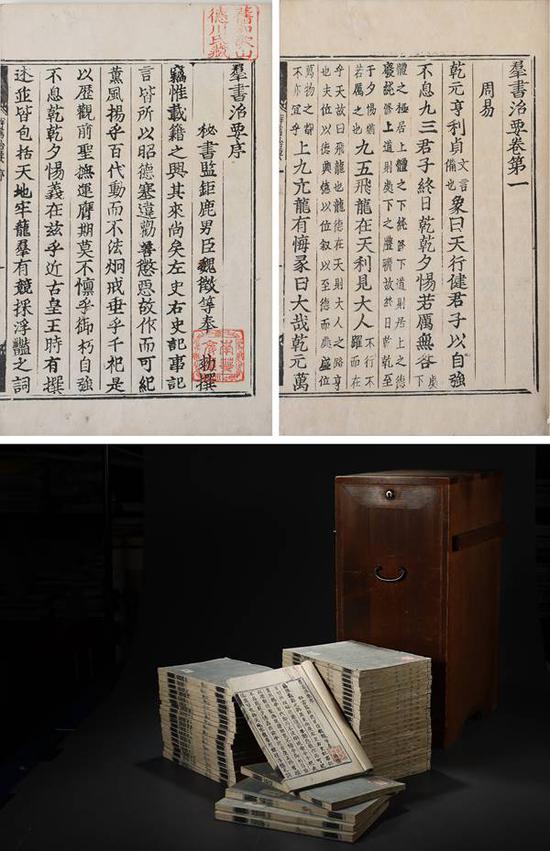 舊和歌山
德川氏藏
羣書治要序
秘書監鉅鹿男臣魏徵等奉 勑撰
竊惟載籍之興其來尚矣左史右史記事記
言皆所以昭德塞違勸善懲惡故作而可紀
薰風揚乎百代動而不法炯戒垂乎千祀是
以歷觀前聖撫運膺期莫不懍乎御朽自強
不息乾乾夕惕義在茲乎近古皇王時有撰
述並皆包括天地牢龍羣有競採浮豔之詞
羣書治要卷第一
周易
乾元亨利貞文言備也象曰天行健君子以自強
不息九三君子終日乾乾夕惕若厲無咎處下
體之極居上體之下純修下道則居上之德
廢純修上道則處下之禮曠故終日乾乾至
于夕惕猶若厲之也九五飛龍在天利見大人不行不躍而在
乎天故曰飛龍也龍德在天則大人之路亨
也夫位以德興德以位叙以至德而處盛位
萬物之覩不亦宜乎上九亢龍有悔彖曰大哉乾元萬